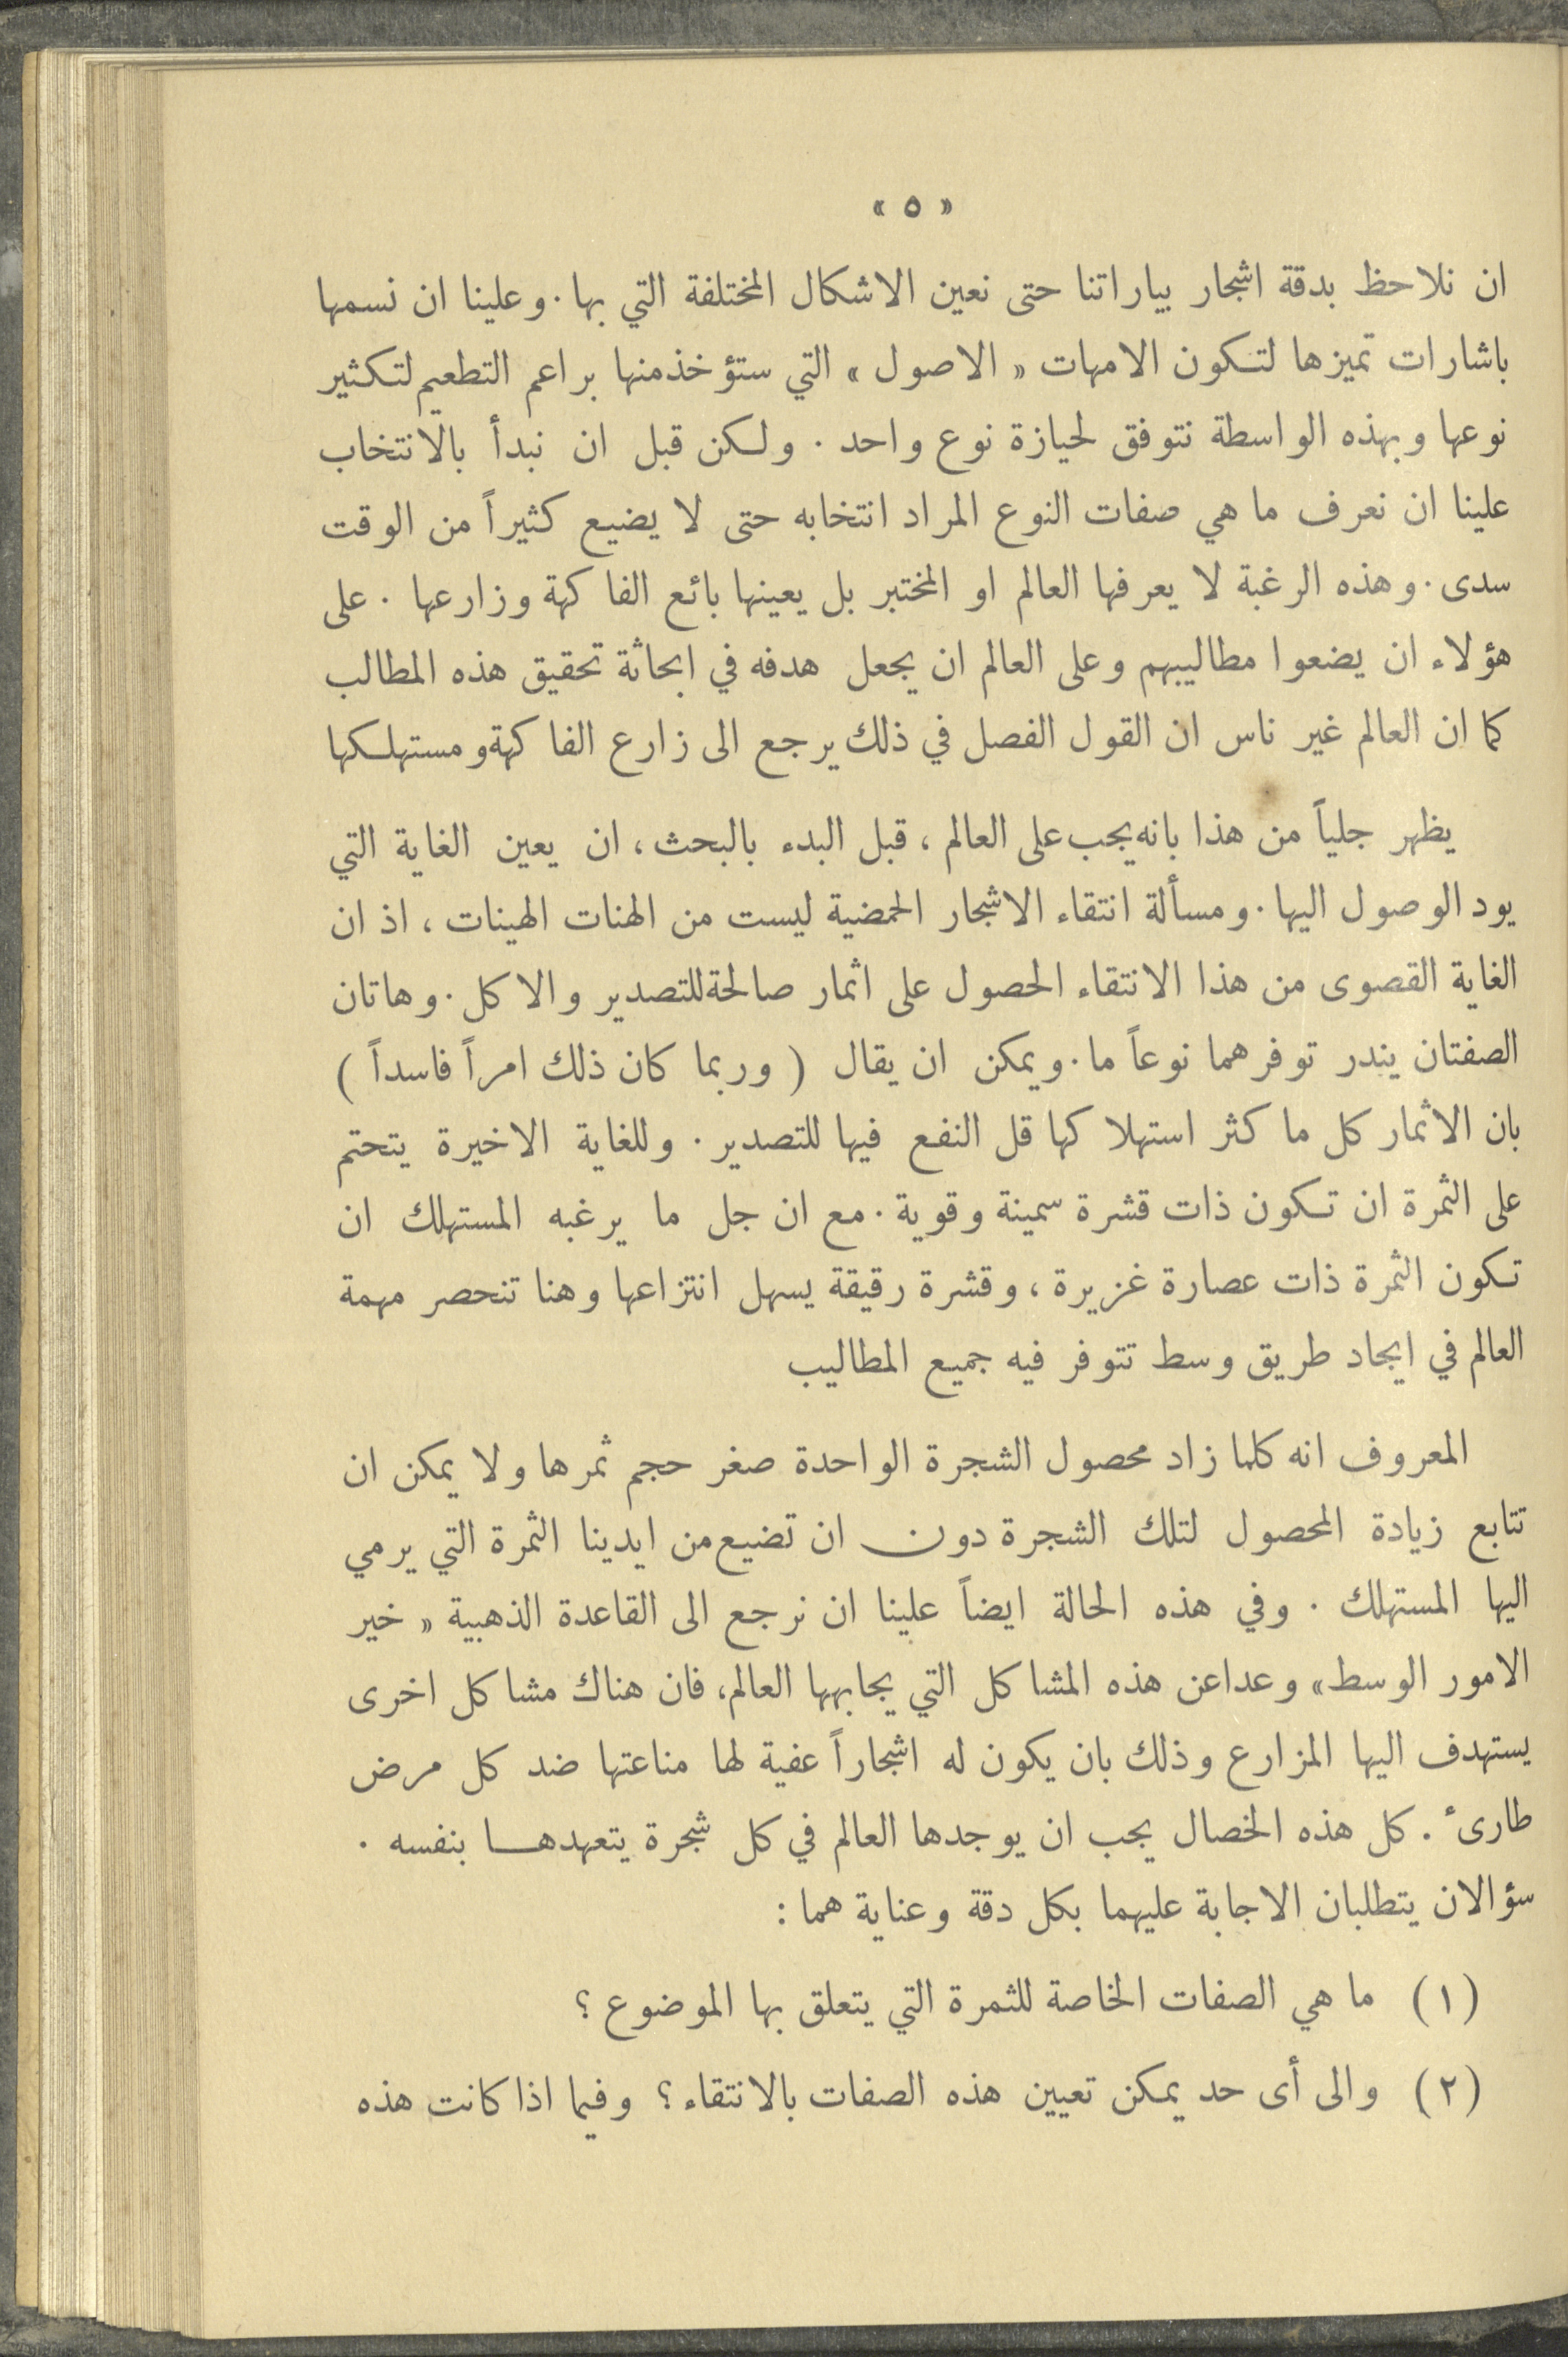 « ٥ »
ان نلاحظ بدقة اشجار بياراتنا حتى نعين الاشكال المختلفة التي بها. وعلينا ان نسمها
باشارات تميزها لتكون الامهات « الاصول » التي ستؤخذ منها براعم التطعيم لتكثير
نوعها وبهذه الواسطة نتوفق لحيازة نوع واحد . ولكن قبل ان نبدأ بالانتخاب
علينا ان نعرف ما هي صفات النوع المراد انتخابه حتى لا يضيع كثيراً من الوقت
سدى. وهذه الرغبة لا يعرفها العالم او المختبر بل يعينها بائع الفاكهة وزارعها . على
هؤلاء ان يضعوا مطاليبهم وعلى العالم ان يجعل هدفه في ابحاثة تحقيق هذه المطالب
كما ان العالم غير ناس ان القول الفصل في ذلك يرجع الى زارع الفاكهة ومستهلكها
يظهر جلياً من هذا بانه يجب على العالم ، قبل البدء بالبحث ، ان يعين الغاية التي
يود الوصول اليها. ومسألة انتقاء الاشجار الحمضية ليست من الهنات الهينات ، اذ ان
الغاية القصوى من هذا الانتقاء الحصول على اثمار صالحة للتصدير والاكل. وهاتان
الصفتان يندر توفرهما نوعاً ما. ويمكن ان يقال ( وربما كان ذلك امراً فاسداً )
بان الاثمار كل ما كثر استهلاكها قل النفع فيها للتصدير . وللغاية الاخيرة يتحتم
على الثمرة ان تكون ذات قشرة سمينة وقوية. مع ان جل ما يرغبه المستهلك ان
تكون الثمرة ذات عصارة غزيرة ، وقشرة رقيقة يسهل انتزاعها وهنا تنحصر مهمة
العالم في ايجاد طريق وسط تتوفر فيه جميع المطاليب
المعروف انه كلما زاد محصول الشجرة الواحدة صغر حجم ثمرها ولا يمكن ان
تتابع زيادة المحصول لتلك الشجرة دون ان تضيع من ايدينا الثمرة التي يرمي
اليها المستهلك . وفي هذه الحالة ايضاً علينا ان نرجع الى القاعدة الذهبية « خير
الامور الوسط» وعدا عن هذه المشاكل التي يجابهها العالم، فان هناك مشاكل اخرى
يستهدف اليها المزارع وذلك بان يكون له اشجاراً عفية لها مناعتها ضد كل مرض
طارىء . كل هذه الخصال يجب ان يوجدها العالم في كل شجرة يتعهدها بنفسه .
سؤالان يتطلبان الاجابة عليهما بكل دقة وعناية هما :
(١) ما هي الصفات الخاصة للثمرة التي يتعلق بها الموضوع ؟
(٢) والى أى حد يمكن تعيين هذه الصفات بالانتقاء ؟ وفيما اذا كانت هذه